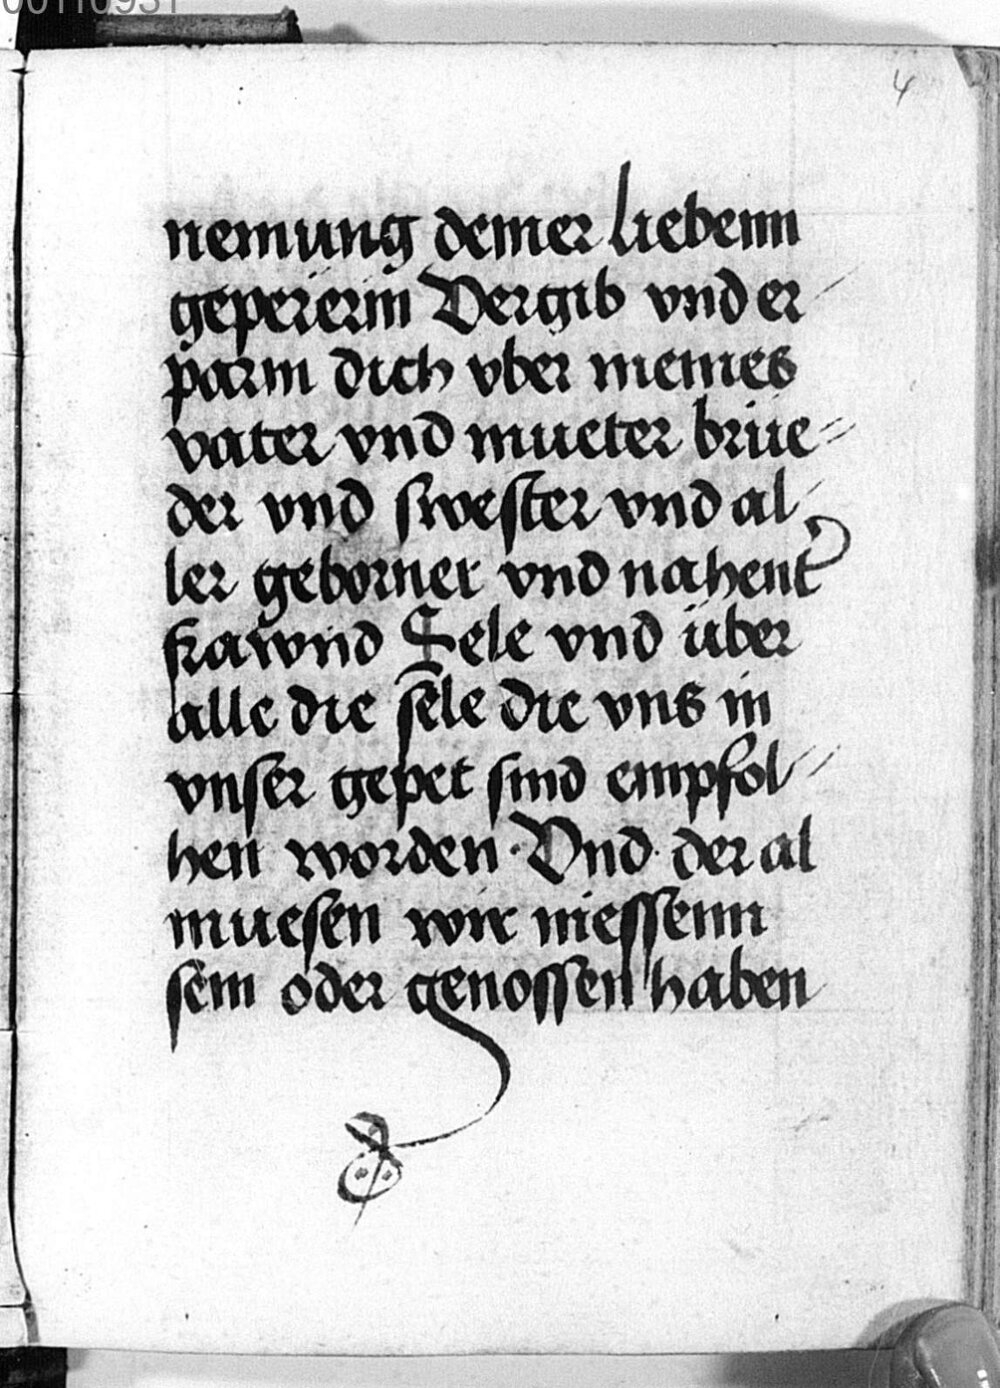 00110931
4
nemung deiner liebenn
gepererin Vergib vnd er/
parm dich vber meines
vater vnd mueter brüe//
der vnd swester vnd al/
ler geborner vnd nahent
frawnd Sele vnd über
alle die sele die vns in
vnser gepet sind empfol//
hen worden · Vnd der al
muesen wir niessenn
sein oder genossen haben